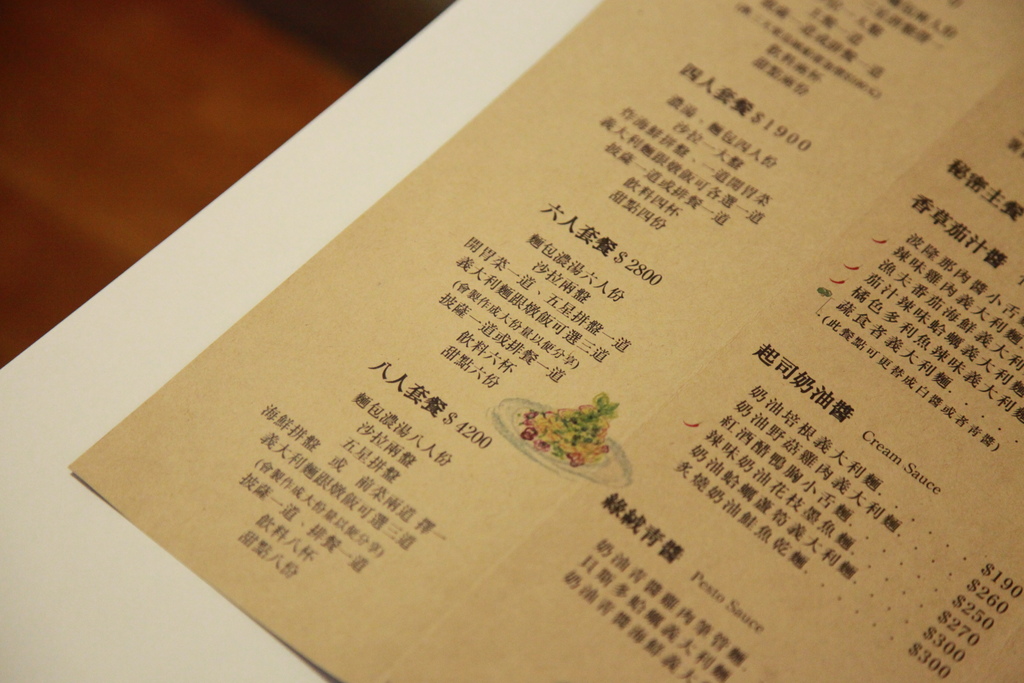 四人套餐 $1900
濃湯、麵包四人份
沙拉一大盤
炸海鮮拼盤、一道開胃菜
義大利麵跟燉飯可各選一道
披薩一道或排餐一道
飲料四杯
甜點四份
六人套餐 $2800
麵包濃湯六人份
沙拉兩盤
開胃菜一道、五星拼盤一道
義大利麵跟燉飯可選三道
(會製作成大份量以便分享)
披薩一道或排餐一道
飲料六杯
甜點六份
八人套餐 $4200
麵包濃湯八人份
沙拉兩盤
五星拼盤
海鮮拼盤 或 前菜兩道 擇一
義大利麵跟燉飯可選三道
(會製作成大份量以便分享)
披薩一道、排餐一道
飲料八杯
甜點八份
秘密主餐
香草茄汁醬
波隆那肉醬小舌麵
辣味雞肉義大利麵
漁夫番茄海鮮義大利麵
茄汁辣味蛤蠣義大利麵
橘色多利魚辣味義大利麵
蔬食者義大利麵
(此餐點可更替成白醬或者青醬)
起司奶油醬 Cream Sauce
奶油培根義大利麵 $190
奶油野菇雞肉義大利麵 $260
紅酒醋鴨胸小舌麵 $250
辣味奶油花枝墨魚麵 $270
奶油蛤蠣蘆筍義大利麵 $300
炙燒奶油鮭魚乾麵 $300
綠絨青醬 Pesto Sauce
奶油青醬雞肉筆管麵
貝斯多蛤蠣義大利麵
奶油青醬海鮮義大